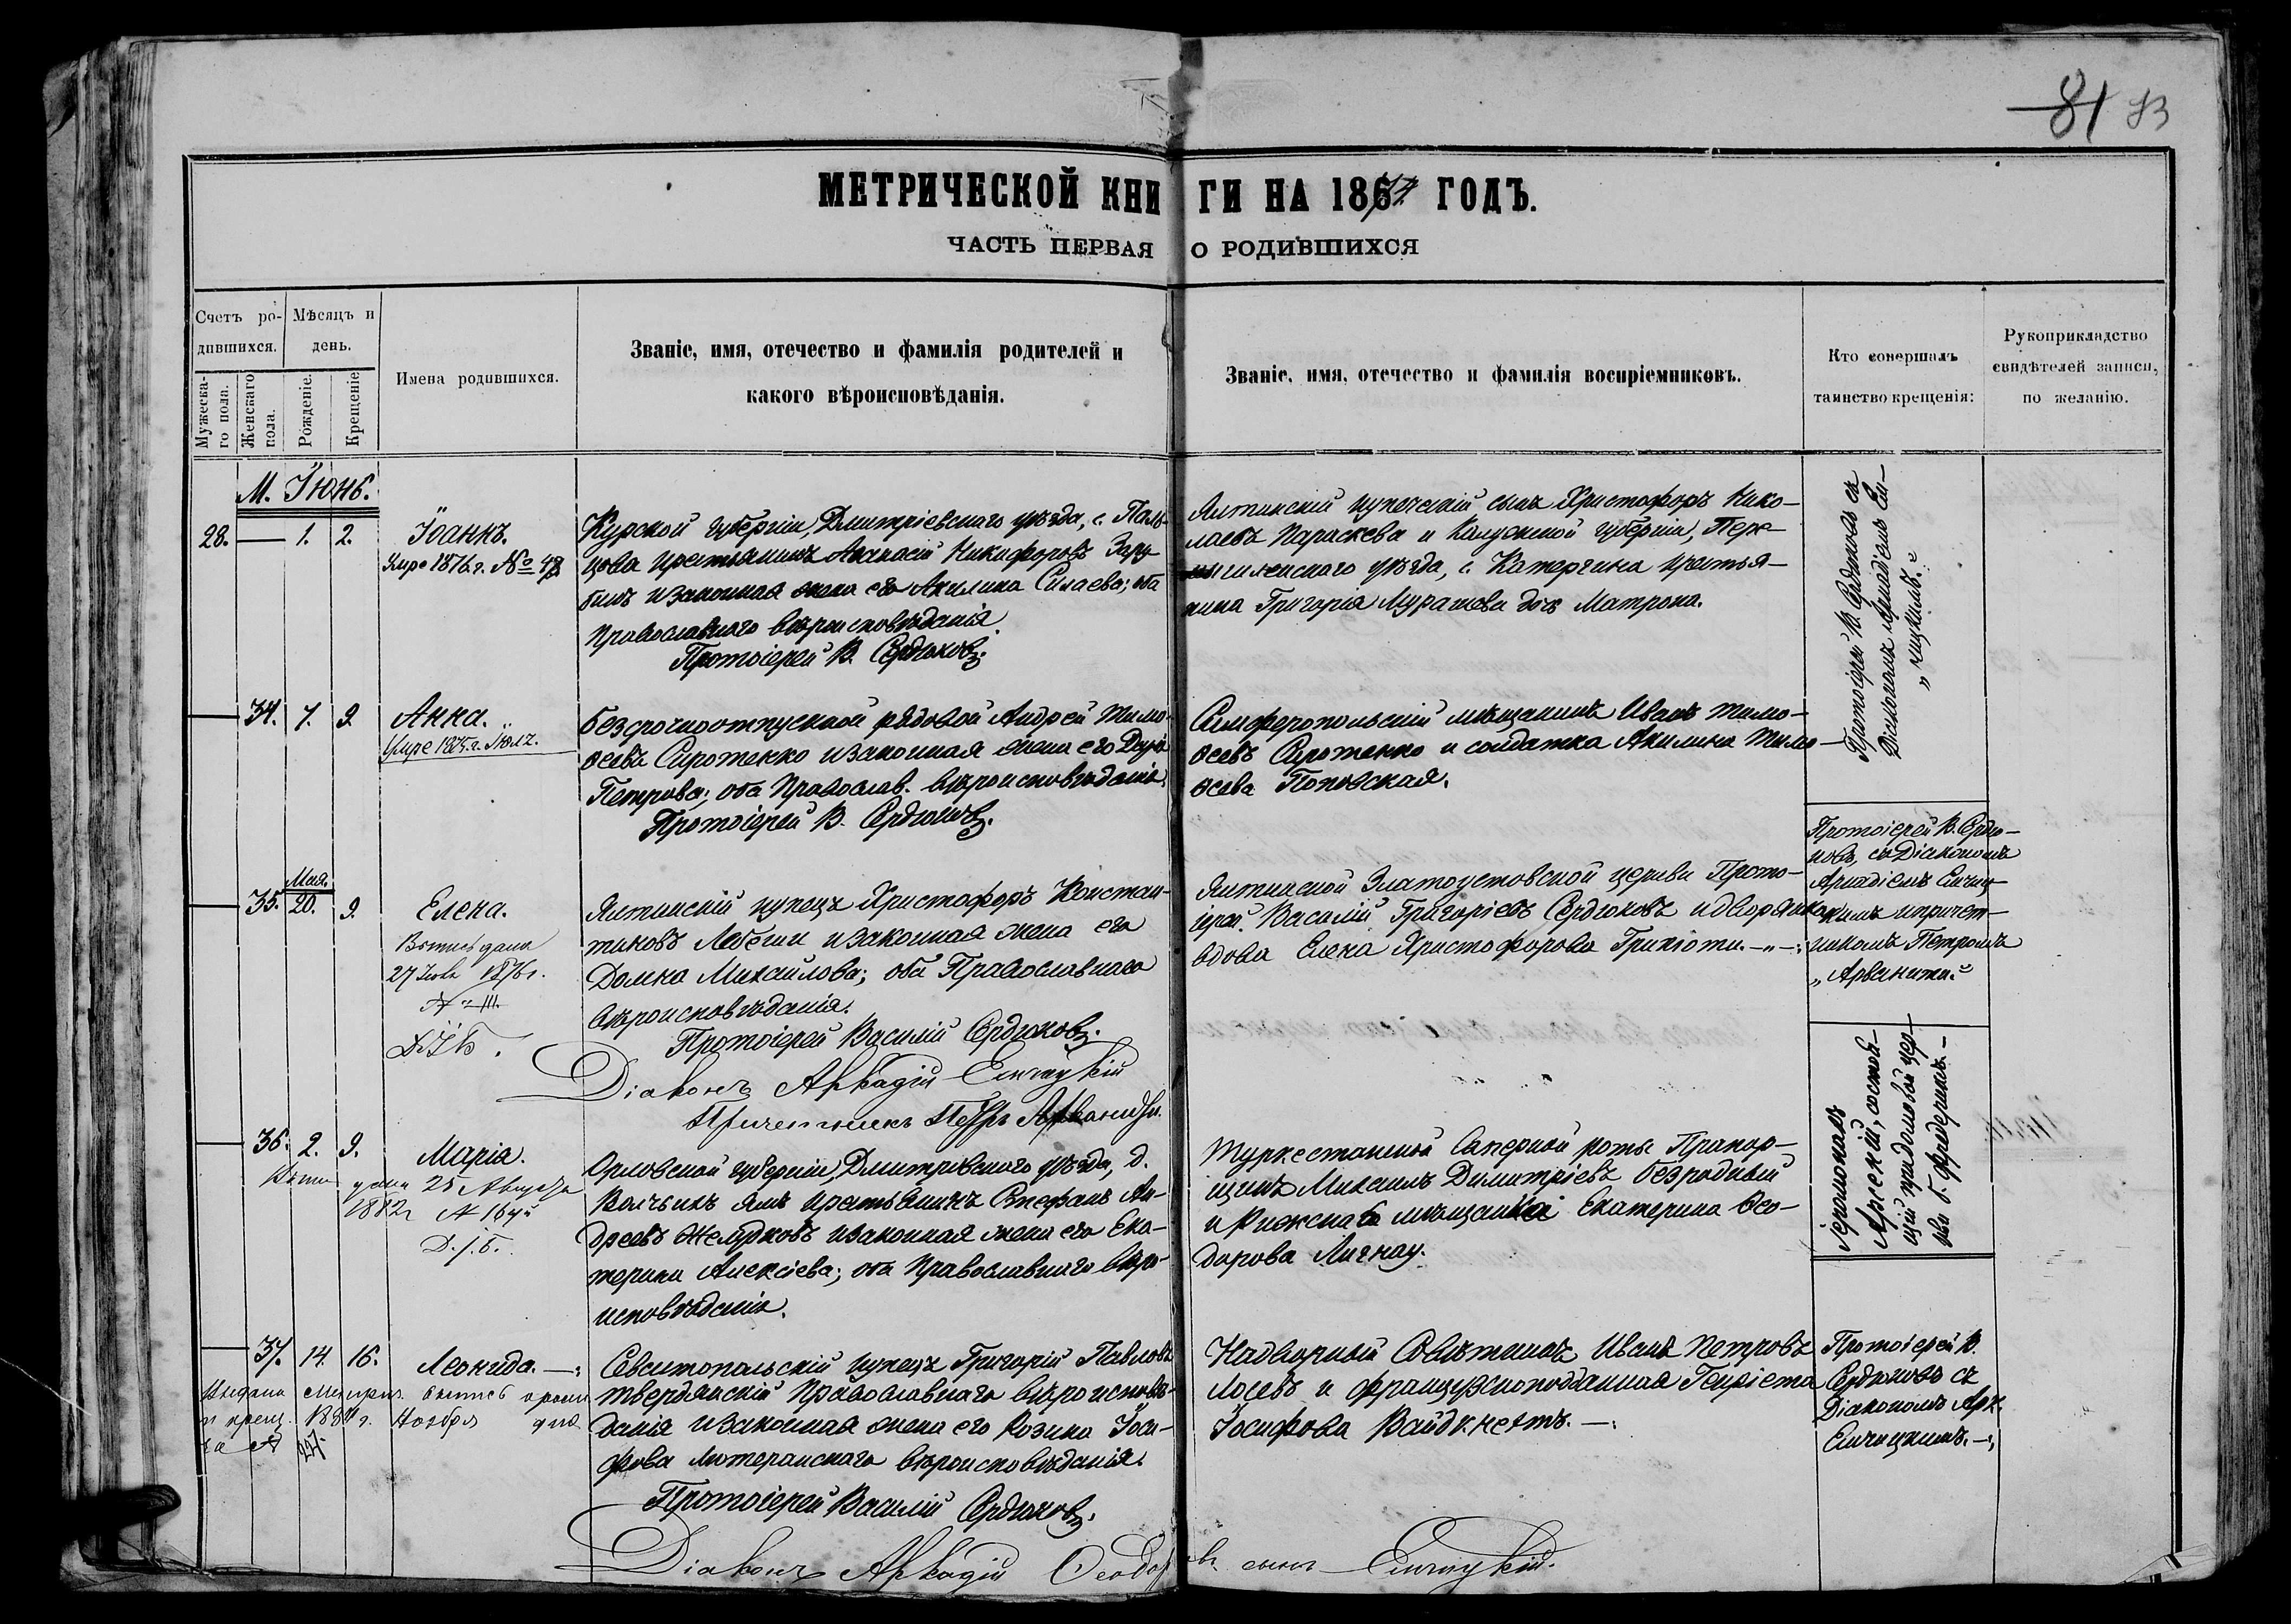 81 83
МЕТРИЧЕСКОЙ КНИГИ НА 1874 ГОДЪ.
ЧАСТЬ ПЕРВАЯ О РОДИВШИХСЯ
Счетъ ро-
дившихся.
Мужеска-
го пола.
Женскаго
пола.
Мѣсяцъ и
день.
Рожденіе.
Крещеніе
Имена родившихся.
Званіе, имя, отечество и фамилія родителей и
какого вѣроисповѣданія.
Званіе, имя, отечество и фамилія воспріемниковъ.
Кто совершалъ
таинство крещенія:
Рукоприкладство
свидѣтелей записи,
по желанію.
М. Іюнь.
28. 1. 2.
Іоаннъ.
Умре 1876 г. №
Курской губерніи, Дмитріевскаго уѣзда, с. Паль-
цова крестьянинъ Аѳанасій Никифоровъ Зару-
бинъ и законная жена его Акилина Силаева; оба
Православнаго вѣроисповѣданія.
Протоіерей В. Сердюковъ.
Ялтинскій купеческій сынъ Христофоръ Нико-
лаевъ Параскева и Калужской губерніи,
уѣзда, с. Катергина крестья-
нина Григорія Мурашева дочь Матрона.
Протоіерей В. Сердюковъ съ
Діакономъ Аркадіемъ Ен-
чицкимъ.
34. 7. 9.
Анна.
Умре 1875 г.
Безсрочноотпускной рядовой Андрей Тимо-
ѳеевъ Сиротенко и законная жена его
Петрова; оба Православ. вѣроисповѣданія.
Протоіерей В. Сердюковъ.
Симферопольскій мѣщанинъ Иванъ Тимо-
ѳеевъ Сиротенко и солдатка Акилина Тимо-
ѳеева Поповская.
Мая.
35. 20. 9.
Елена.
Вѣтпись дана
27 1876 г.
№ 111.
Ялтинскій купецъ Христофоръ Констан-
тиновъ и законная жена его
Домна Михайлова; оба Православнаго
вѣроисповѣданія.
Протоіерей Василій Сердюковъ.
Діаконъ Аркадій Енчицкій
Причетникъ Петръ
Ялтинской Златоустовской церкви Прото-
іерей Василій Григоріевъ Сердюковъ и дворянка
вдова Елена Христофорова
Протоіерей В. Сердю-
ковъ, съ Діакономъ
Аркадіемъ Енчиц-
кимъ и причет-
никомъ Петромъ
36. 2. 9.
Марія.
дана 25 Августа
1882 г № 164
Д. І. Б.
Орловской губерніи, Дмитровскаго уѣзда, д.
Волчьихъ ямъ крестьянинъ Стефанъ Ан-
дреевъ Желудковъ и законная жена его Ека-
терина Алексіева; оба Православнаго вѣро-
исповѣданія.
Туркестанской Саперной роты Прапор-
щикъ Михаилъ Димитріевъ Безродный
и Рижская мѣщанка Екатерина Ѳео-
дорова
Іеромонахъ
Арсеній, состоя-
щій придомовой цер-
кви
37. 14. 16.
Леонида.
Выдана метрич. выпись о рожд.
и крещ. Ноября дня
за №
Севастопольскій купецъ Григорій Павловъ
Твердянскій Православнаго вѣроисповѣ-
данія и законная жена его Розина Іоси-
фова Лютеранскаго вѣроисповѣданія.
Протоіерей Василій Сердюковъ.
Діаконъ Аркадій Ѳеодоровъ сынъ Енчицкій.
Надворный Совѣтникъ Иванъ Петровъ
Лосевъ и французскоподданная Генріета
Іосифова
Протоіерей В.
Сердюковъ съ
Діакономъ Арк.
Енчицкимъ.